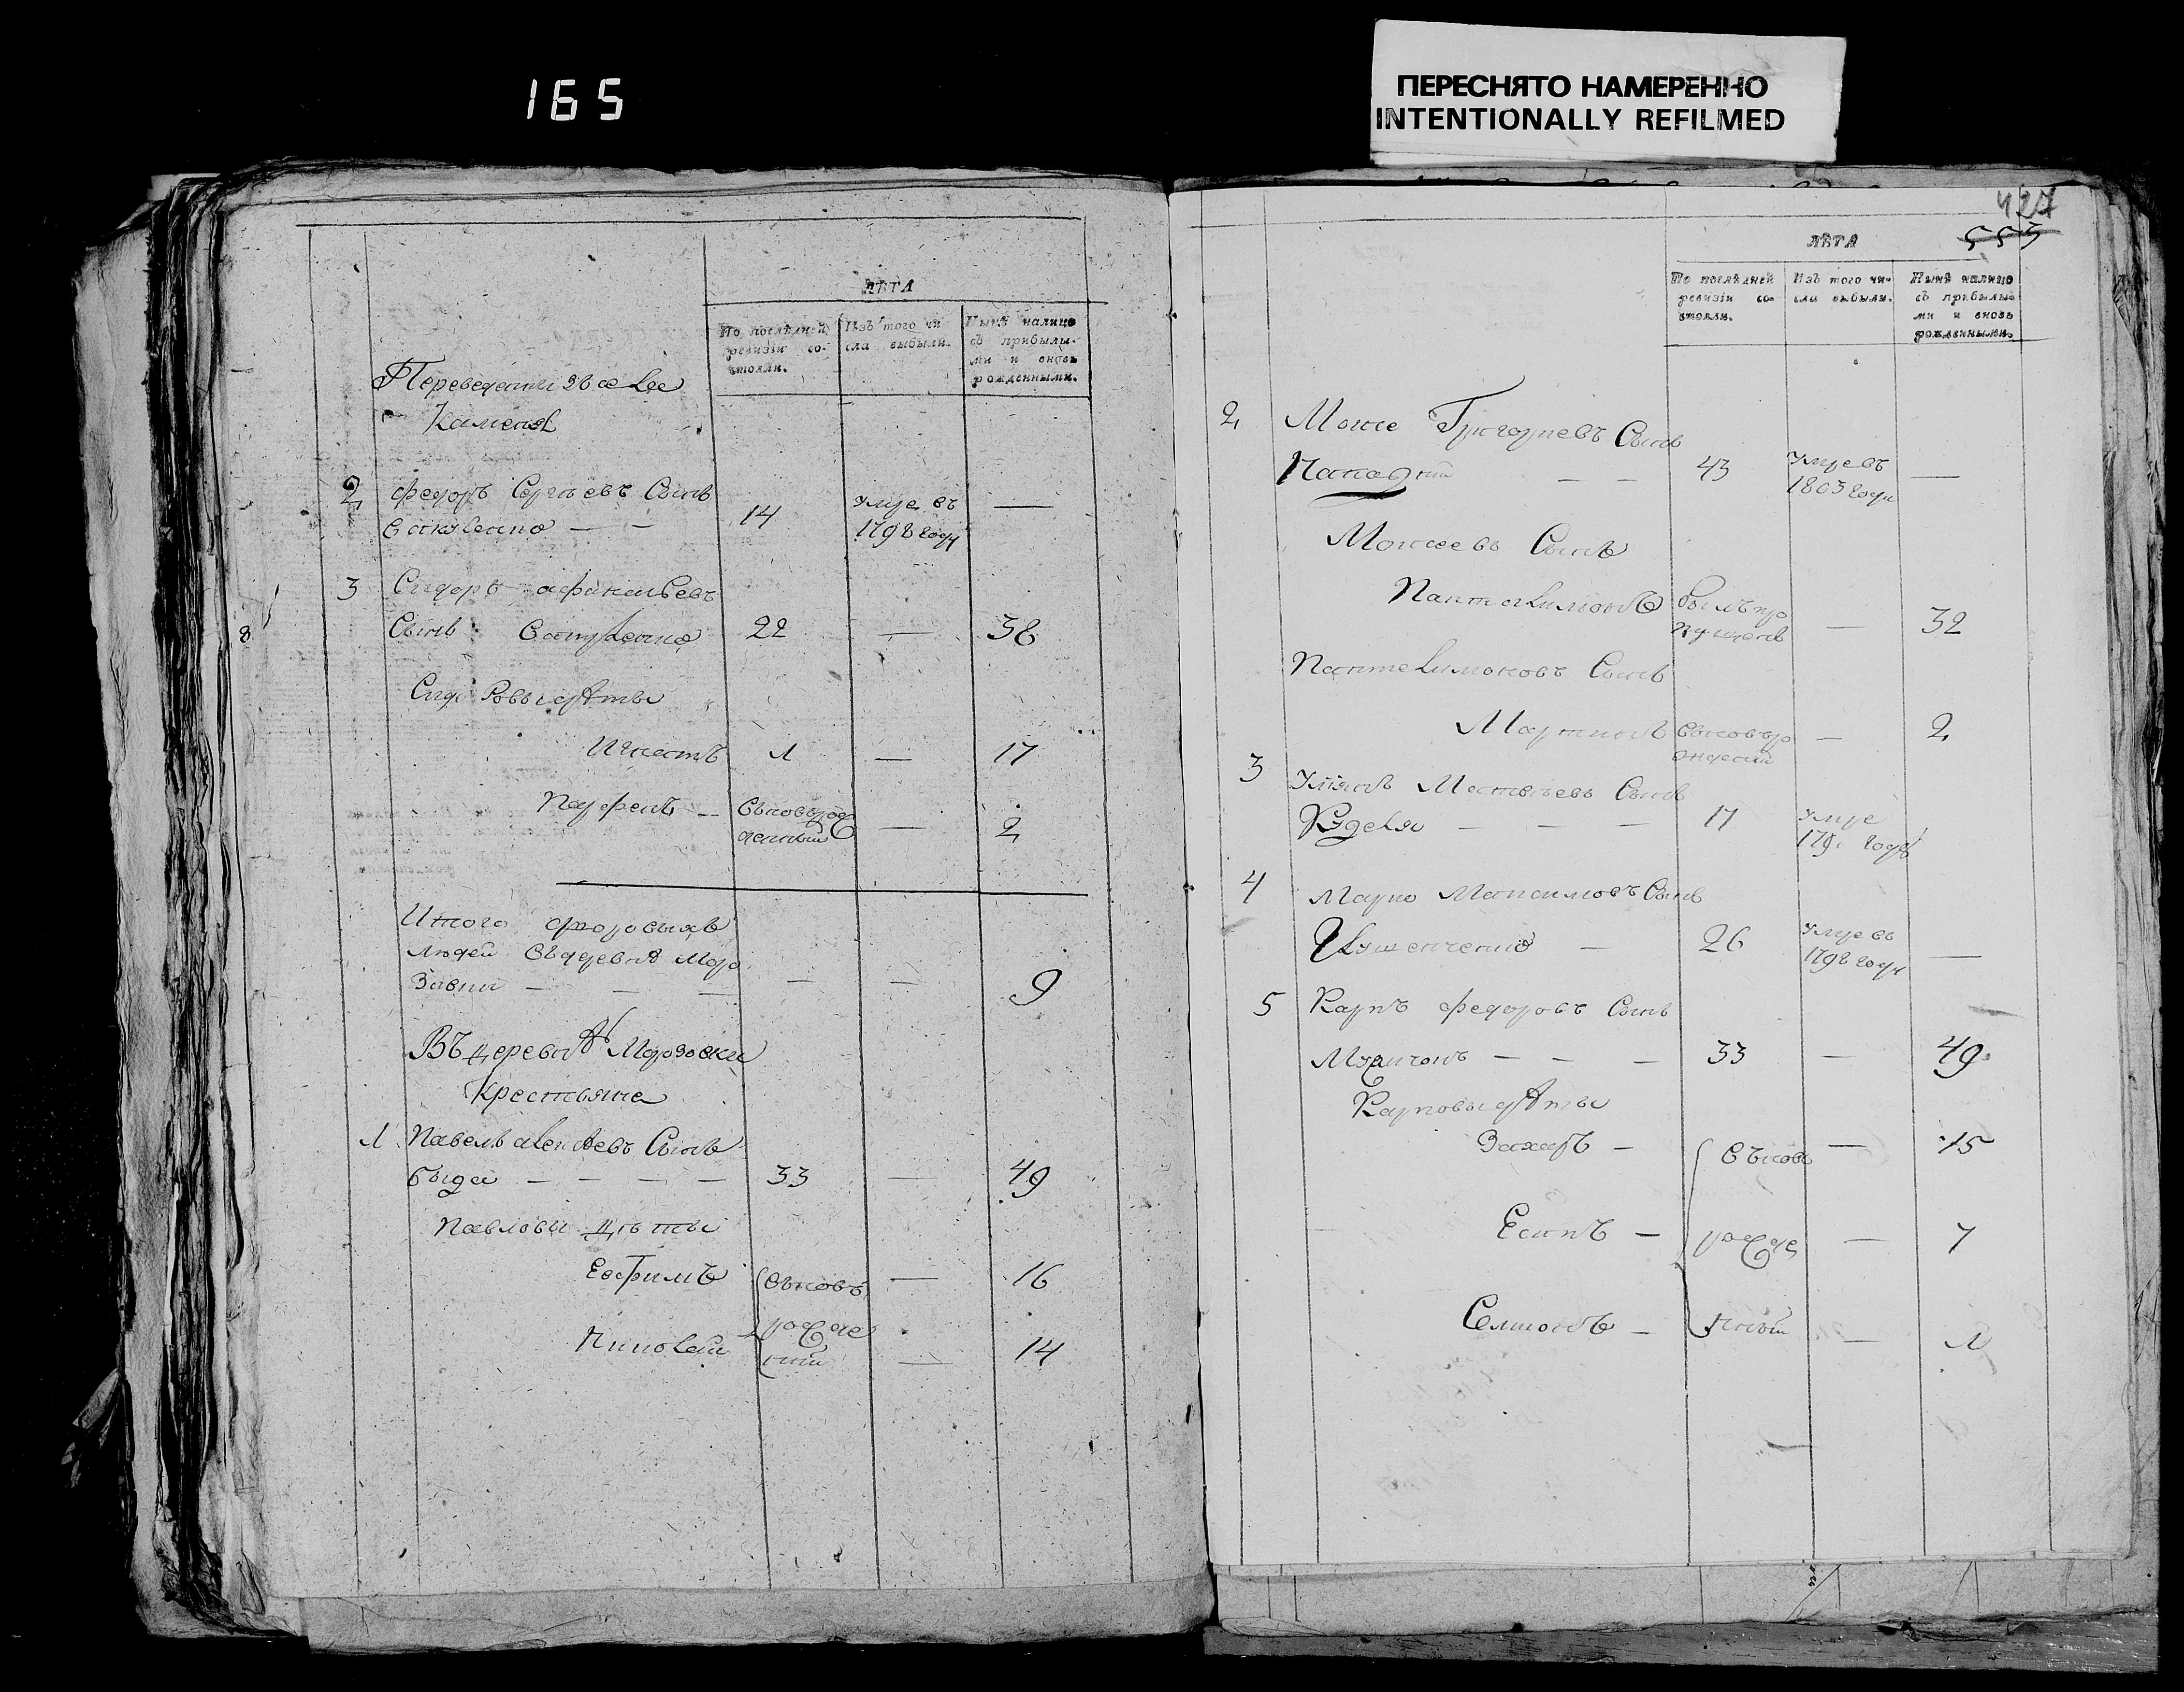 165
ПЕРЕСНЯТО НАМЕРЕННО
INTENTIONALLY REFILMED
ЛѢТА
По послѣдней ревизіи состояли.
Изъ того числа выбыли.
Нынѣ налицо съ прибылыми и вновь рожденными.
Переведенни
2 Федоръ Сергѣевъ Сынъ
14 умре въ 1798 году —
3 Сидоръ Афанасьевъ
8 Сынъ 22 — 38
Сидоровы дѣти
Игнатъ 1 — 17
Парфенъ — вновьрожденный — 2
Итого дворовыхъ
людей въ деревнѣ Моро
зовки — — — — — 9
Въ деревнѣ Морозовки
Крестьяне
1 Павелъ Алексѣевъ Сынъ
Быда — — — — 33 — 49
Павловы дѣти
Ефимъ вновь — 16
рожденный — 14
427
555
ЛѢТА
По послѣдней ревизіи состояли.
Изъ того числа выбыли.
Нынѣ налицо съ прибылыми и вновь рожденными.
2 Мойсе Григорьевъ Сынъ
— — 43 умре въ 1803 году —
Мойсеевъ Сынъ
Пантелимонъ былъ пропущенъ — 32
Пантелимоновъ Сынъ
Мартинъ вновьрожденный — 2
3 Матвѣевъ Сынъ
Куделя — — — 17 умре
году
4 Марко Максимовъ Сынъ
— 26 умре въ 1798 году —
5 Карпъ Федоровъ Сынъ
— — — 33 — 49
Карповы дѣти
Захаръ — вновь — 15
Есипъ — рожде — 7
Семионъ — нный — 1